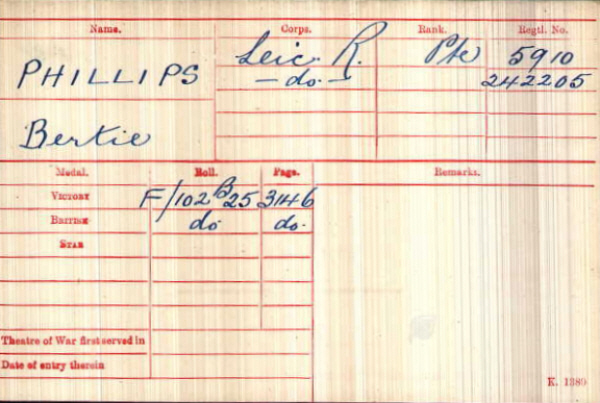 Name. Corps. Rank. Regtl. No.
PHILLIPS Leic. R. Pte 5910
—do.— 242205
Bertie
Medal. Roll. Page. Remarks.
VICTORY F/102 B25 3146
BRITISH do do.
STAR
Theatre of War first served in
Date of entry therein
K. 1380